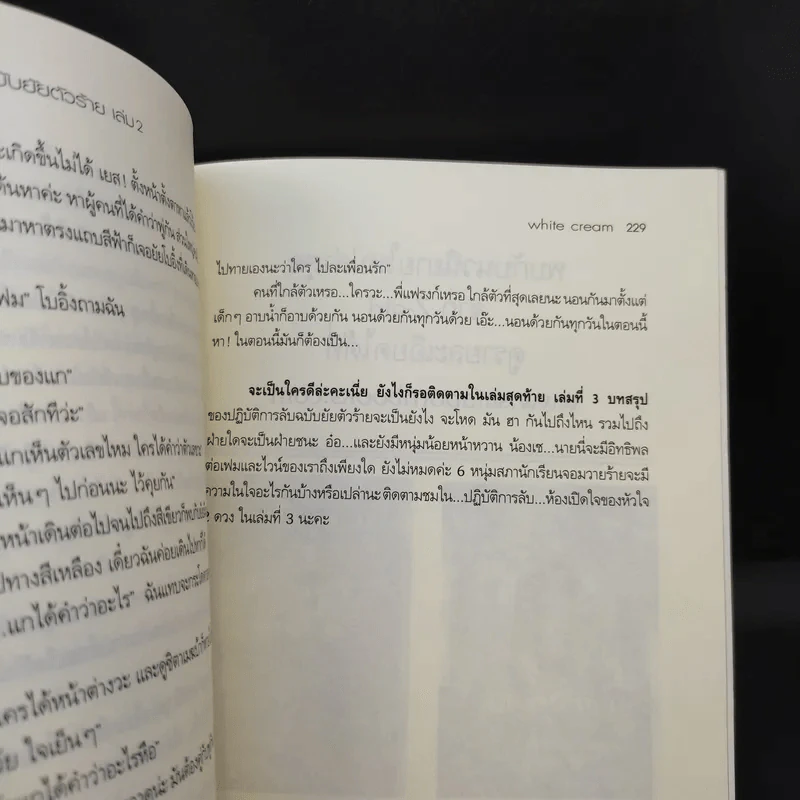 ฉบับยัยตัวร้าย เล่ม 2
ะเกิดขึ้นไม่ได้ เยส! ตั้งหน้าตั้งตา
ต้นหาค่ะ หาผู้คนที่ได้คำว่าพู่กัน
มาหาตรงแถบสีฟ้าก็เจอยัยโบอิ้ง
ฟม" โบอิ้งถามฉัน
บของแก"
จอสักทีว่ะ"
แกเห็นตัวเลขไหม ใครได้คำว่า
ห็นๆ ไปก่อนนะ ไว้คุยกัน"
หน้าเดินต่อไปจนไปถึงสีเขียวก็พบกับ
ปทางสีเหลือง เดี๋ยวฉันค่อยเดินไป
...แกได้คำว่าอะไร" ฉันแทบจะกระโดด
ใครได้หน้าต่างวะ และดูซิตา
วัย ใจเย็นๆ"
กได้คำว่าอะไรหือ"
white cream 229
ไปทายเองนะว่าใคร ไปละเพื่อนรัก"
คนที่ใกล้ตัวเหรอ...ใครวะ...พี่แฟรงก์เหรอ ใกล้ตัวที่สุดเลยนะ นอนกันมาตั้งแต่
เด็กๆ อาบน้ำก็อาบด้วยกัน นอนด้วยกันทุกวันด้วย เอ๊ะ...นอนด้วยกันทุกวันในตอนนี้
หา! ในตอนนี้มันก็ต้องเป็น...
จะเป็นใครดีล่ะคะเนี่ย ยังไงก็รอติดตามในเล่มสุดท้าย เล่มที่ 3 บทสรุป
ของปฏิบัติการลับฉบับยัยตัวร้ายจะเป็นยังไง จะโหด มัน ฮา กันไปถึงไหน รวมไปถึง
ฝ่ายใดจะเป็นฝ่ายชนะ อ๋อ...และยังมีหนุ่มน้อยหน้าหวาน น้องเซ...นายนี่จะมีอิทธิพล
ต่อเฟมและไวน์ของเราถึงเพียงใด ยังไม่หมดค่ะ 6 หนุ่มสภานักเรียนจอมวายร้ายจะมี
ความในใจอะไรกันบ้างหรือเปล่านะ ติดตามชมใน...ปฏิบัติการลับ...ห้องเปิดใจของหัวใจ
ดวง ในเล่มที่ 3 นะคะ